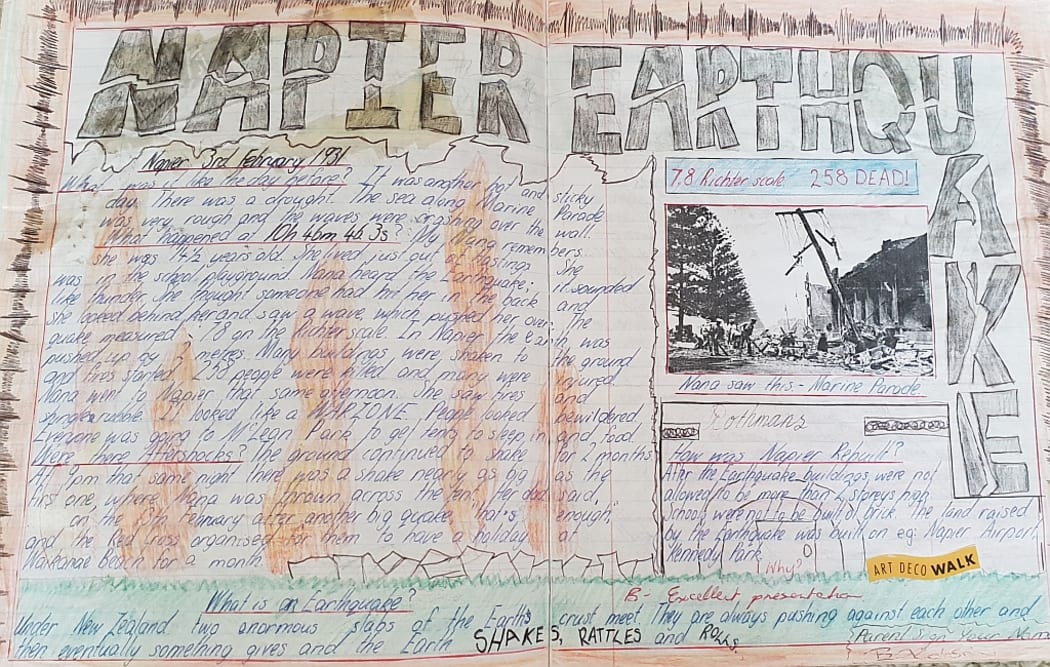 NAPIER EARTHQUAKE
Napier 3rd February 1931
What was it like the day before? It was another hot and sticky
day. There was a drought. The sea along Marine Parade
was very rough and the waves were crashing over the wall.
What happened at 10h 46m 46.3s? My Nana remembers.
She was 14½ years old. She lived just out of Hastings. She
was in the school playground. Nana heard the Earthquake; it sounded
like thunder. She thought someone had hit her in the back and
she looked behind her and saw a wave, which pushed her over. The
quake measured 7.8 on the Richter scale. In Napier the earth was
pushed up by 2 metres. Many buildings were shaken to the ground
and fires started. 258 people were killed and many were injured.
Nana went to Napier that same afternoon. She saw fires and
rubble. It looked like a WARZONE. People looked bewildered.
Everyone was going to McLean Park to get tents to sleep in, and food.
Were there Aftershocks? The ground continued to shake for 2 months
At 7pm that same night there was a shake nearly as big as the
first one, where Nana was thrown across the tent. Her dad said,
on the 8th February after another big quake "that's enough,"
and the Red Cross organised for them to have a holiday at
Waikanae Beach for a month.
7.8 Richter scale 258 DEAD!
Nana saw this - Marine Parade.
Rothmans
How was Napier Rebuilt?
After the Earthquake buildings were not
allowed to be more than 2 storeys high.
Schools were not to be built of brick. The land raised
by the Earthquake was built on eg: Napier Airport,
Kennedy Park.
Why?
ART DECO WALK
B- Excellent presentation
What is an Earthquake?
Under New Zealand two enormous slabs of the Earth's crust meet. They are always pushing against each other and
then eventually something gives and the Earth SHAKES, RATTLES and ROLLS.
Parent Sign Your Name